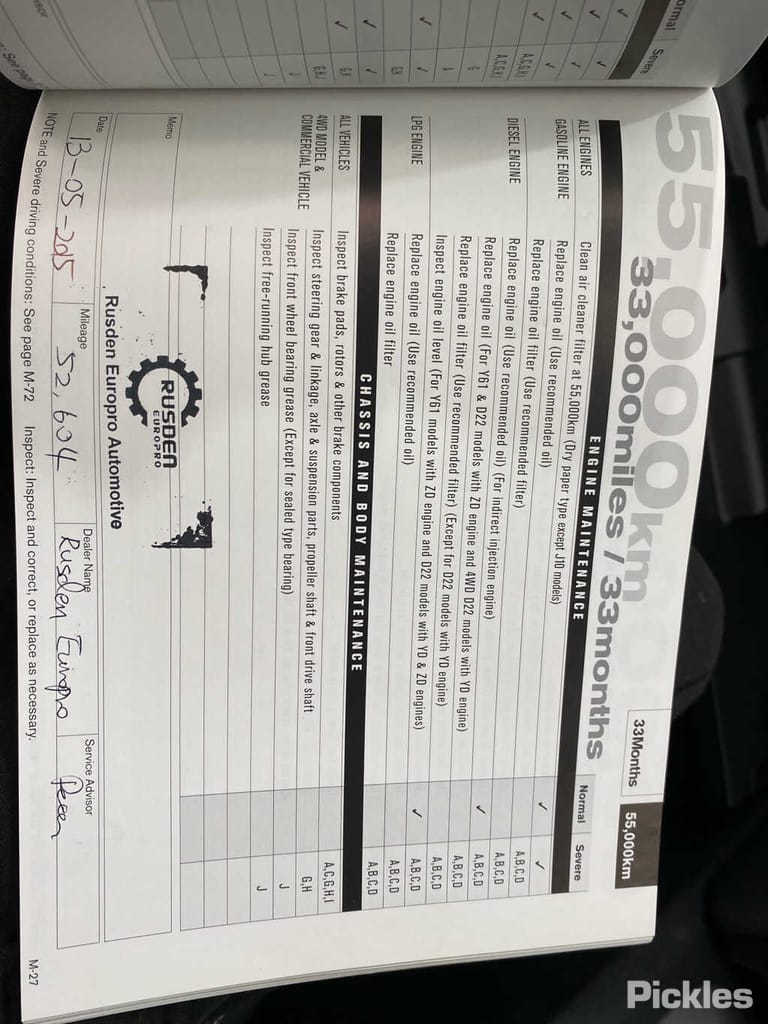 55,000km
33,000miles / 33months
33Months 55,000km
ENGINE MAINTENANCE Normal Severe
ALL ENGINES Clean air cleaner filter at 55,000km (Dry paper type except J10 models) ✓ ✓
GASOLINE ENGINE Replace engine oil (Use recommended oil) A,B,C,D
Replace engine oil filter (Use recommended filter) A,B,C,D
DIESEL ENGINE Replace engine oil (Use recommended oil) (For indirect injection engine) ✓ A,B,C,D
Replace engine oil (For Y61 & D22 models with ZD engine and 4WD D22 models with YD engine) A,B,C,D
Replace engine oil filter (Use recommended filter) (Except for D22 models with YD engine) A,B,C,D
Inspect engine oil level (For Y61 models with ZD engine and D22 models with YD & ZD engines) ✓ A,B,C,D
LPG ENGINE Replace engine oil (Use recommended oil) A,B,C,D
Replace engine oil filter A,B,C,D
CHASSIS AND BODY MAINTENANCE
ALL VEHICLES Inspect brake pads, rotors & other brake components A,C,G,H,I
4WD MODEL & COMMERCIAL VEHICLE Inspect steering gear & linkage, axle & suspension parts, propeller shaft & front drive shaft G,H
Inspect front wheel bearing grease (Except for sealed type bearing) J
Inspect free-running hub grease J
Memo
RUSDEN
EUROPRO
Rusden Europro Automotive
Date 13-05-2015 Mileage 52,604 Dealer Name Rusden Europro Service Advisor
NOTE and Severe driving conditions: See page M-72 Inspect: Inspect and correct, or replace as necessary.
M-27
Severe
Pickles